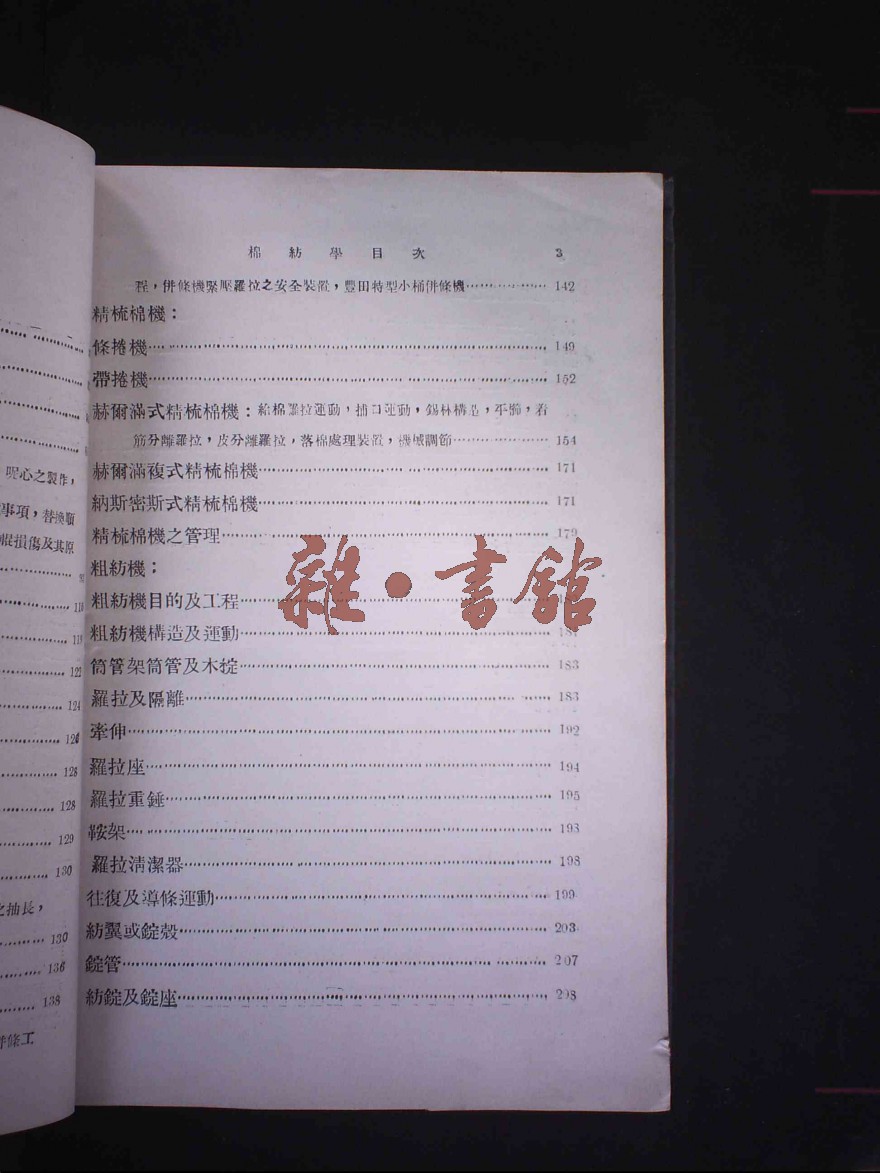 呢心之製作，
事項，替換順
損傷及其原
118
122
124
126
128
128
129
130
之抽長，
130
136
138
併條工
棉紡學目次 3
程，併條機緊壓羅拉之安全裝置，豐田特型小桶併條機 142
精梳棉機：
條捲機 149
帶捲機 152
赫爾滿式精梳棉機：給棉羅拉運動，捕口運動，錫林構造，平櫛，若
筋分離羅拉，皮分離羅拉，落棉處理裝置，機械調節 154
赫爾滿複式精梳棉機 171
納斯密斯式精梳棉機 171
精梳棉機之管理 179
粗紡機：
粗紡機目的及工程
粗紡機構造及運動 181
筒管架筒管及木掟 183
羅拉及隔離 183
牽伸 192
羅拉座 194
羅拉重錘 195
鞍架 193
羅拉清潔器 198
往復及導條運動 199
紡翼或錠殼 203
錠管 207
紡錠及錠座 208
雜·書館